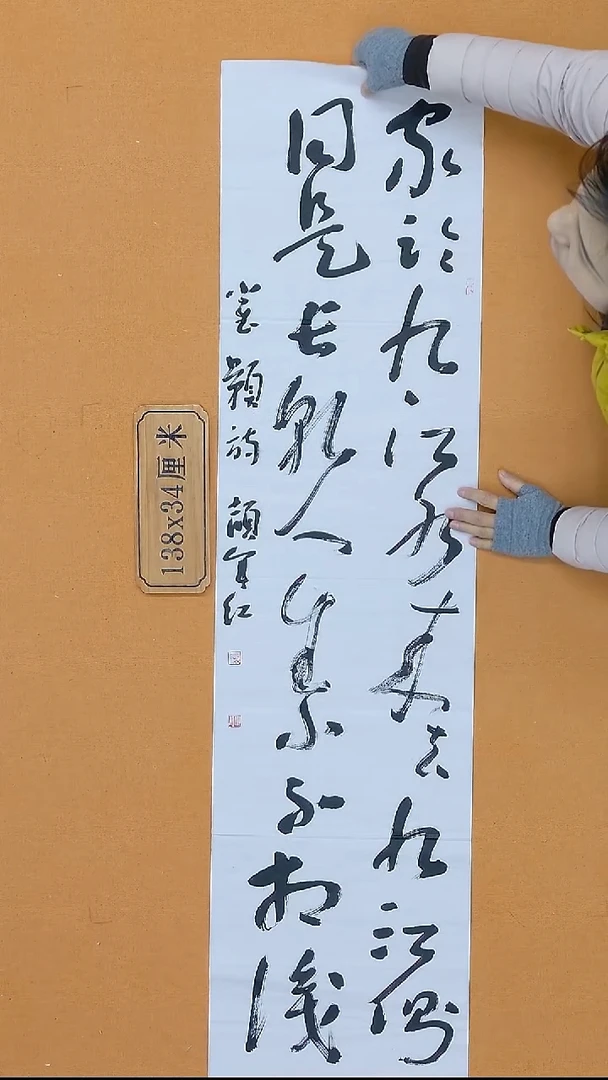 家临九江水来去九江侧
同是长乾人生小不相識
崔颢诗
138x34厘米